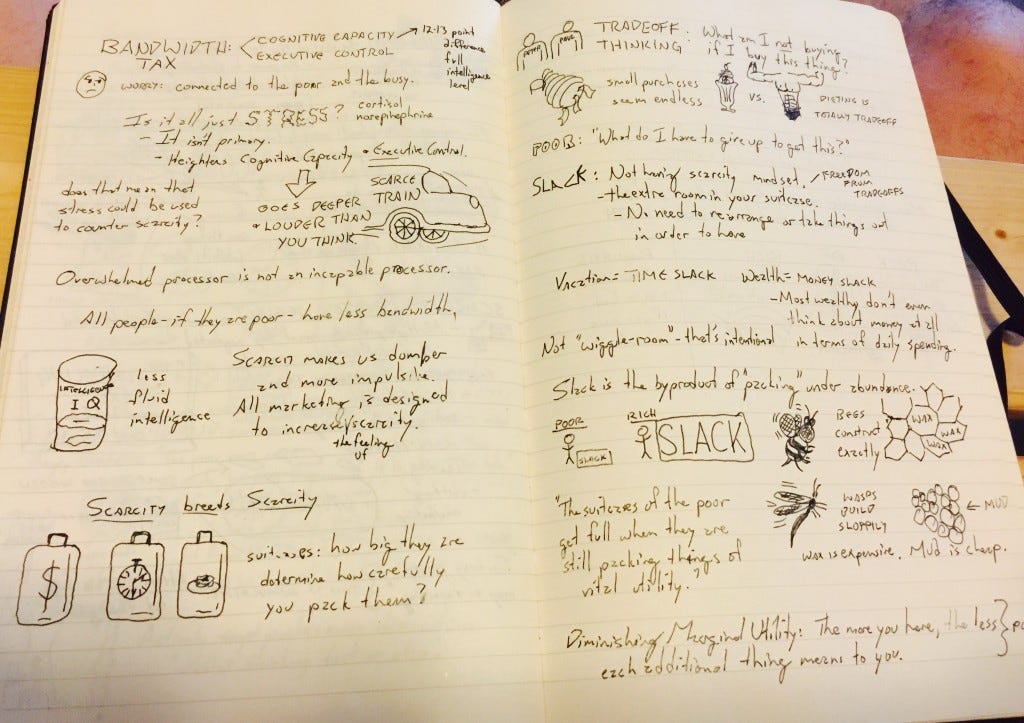 BANDWIDTH TAX:
COGNITIVE CAPACITY
EXECUTIVE CONTROL
12-13 point
difference
full
intelligence
level
WORRY: connected to the poor and the busy.
Is it all just STRESS?
cortisol
norepinephrine
- It isn't primary.
- Heightens Cognitive Capacity & Executive Control.
does that mean that
stress could be used
to counter scarcity?
GOES DEEPER
& LOUDER THAN
YOU THINK.
SCARCE
TRAIN
Overwhelmed processor is not an incapable processor.
All people - if they are poor - have less bandwidth.
INTELLIGENCE
IQ
less
fluid
intelligence
SCARCITY makes us dumber
and more impulsive.
All marketing is designed
to increase/scarcity.
the feeling
of
SCARCITY breeds Scarcity
$
suitcases: how big they are
determine how carefully
you pack them?
PETER
PAUL
TRADEOFF
THINKING:
What am I not buying
if I buy this thing?
small purchases
seem endless
VS.
DIETING IS
TOTALLY TRADEOFF
POOR: "What do I have to give up to get this?"
SLACK: Not having scarcity mindset.
FREEDOM
FROM
TRADEOFFS
- the extra room in your suitcase.
- No need to rearrange or take things out
in order to have
Vacation = TIME SLACK
Wealth = MONEY SLACK
- Most wealthy don't even
think about money at all
in terms of daily spending.
Not "wiggle-room" - that's intentional
Slack is the byproduct of "packing" under abundance.
POOR
SLACK
RICH
SLACK
BEES
CONSTRUCT
EXACTLY
WAX
WAX
WAX
"The suitcases of the poor
get full when they are
still packing things of
vital utility."
WASPS
BUILD
SLOPPILY
MUD
WAX is expensive. MUD is cheap.
Diminishing Marginal Utility: The more you have, the less
each additional thing means to you.